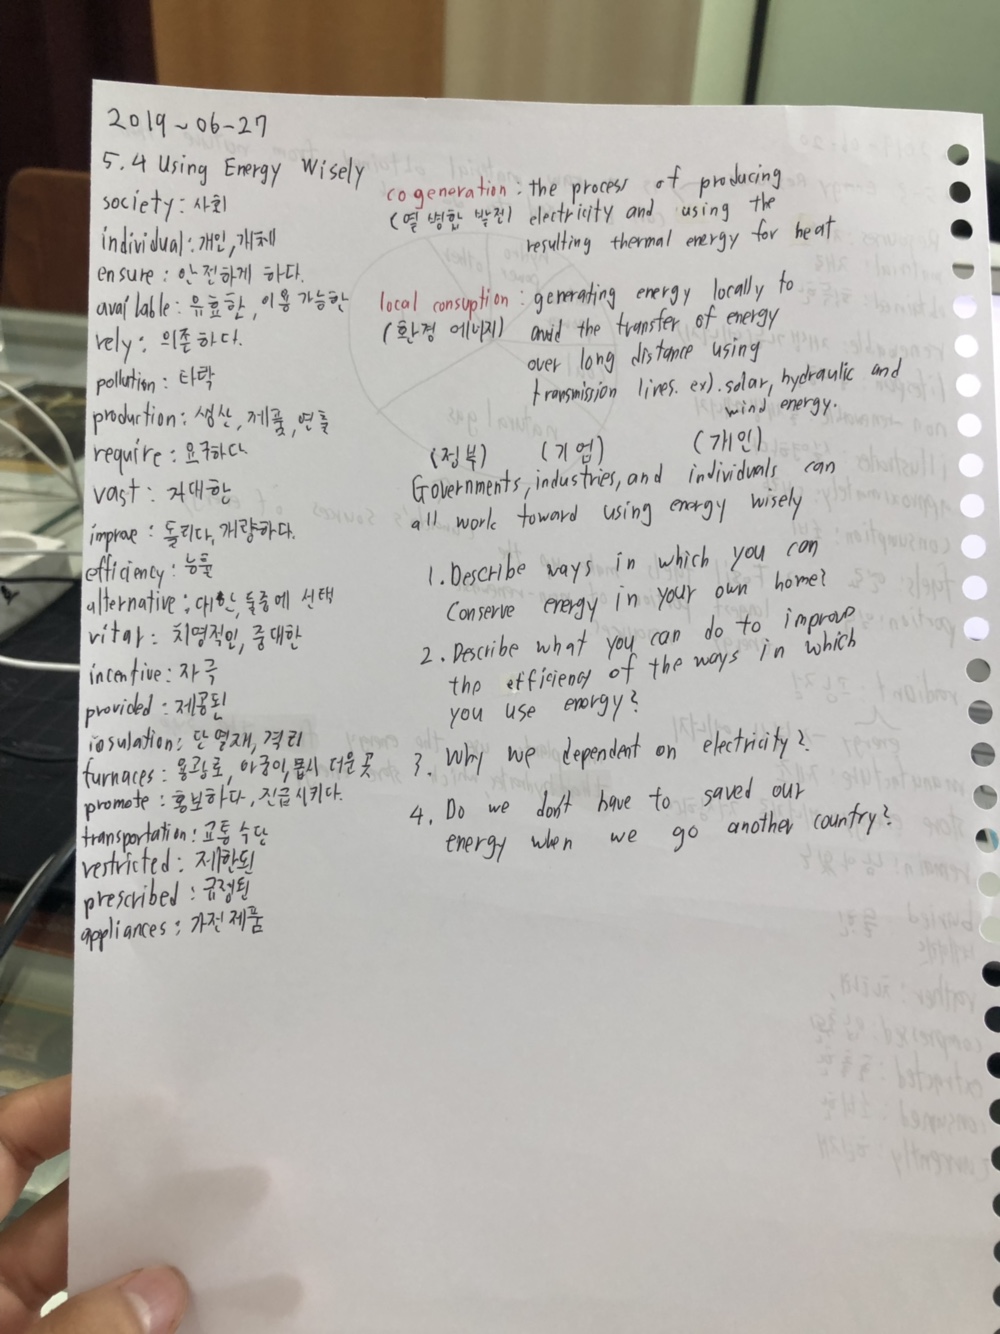 2019-06-27
5.4 Using Energy Wisely
society : 사회
individual : 개인, 개체
ensure : 안전하게 하다.
available : 유효한, 이용 가능한
rely : 의존하다.
pollution : 타락
production : 생산, 제품, 연출
require : 요구하다.
vast : 거대한
improve : 늘리다, 개량하다.
efficiency : 능률
alternative : 대안, 둘중에 선택
vitar : 치명적인, 중대한
incentive : 자극
provided : 제공된
iosulation : 단열재, 격리
furnaces : 용광로, 아궁이, 몹시 더운 곳
promote : 홍보하다, 진급시키다.
transportation : 교통 수단
restricted : 제한된
prescribed : 규정된
appliances : 가전 제품
cogeneration : the process of producing
(열 병합 발전) electricity and using the
resulting thermal energy for heat
local consuption : generating energy locally to
(환경 에너지) avoid the transfer of energy
over long distance using
transmission lines. ex). solar, hydraulic and
wind energy.
(정부) (기업) (개인)
Governments, industries, and individuals can
all work toward using energy wisely
1. Describe ways in which you can
conserve energy in your own home?
2. Describe what you can do to improve
the efficiency of the ways in which
you use energy?
3. Why we dependent on electricity?
4. Do we don't have to saved our
energy when we go another country?